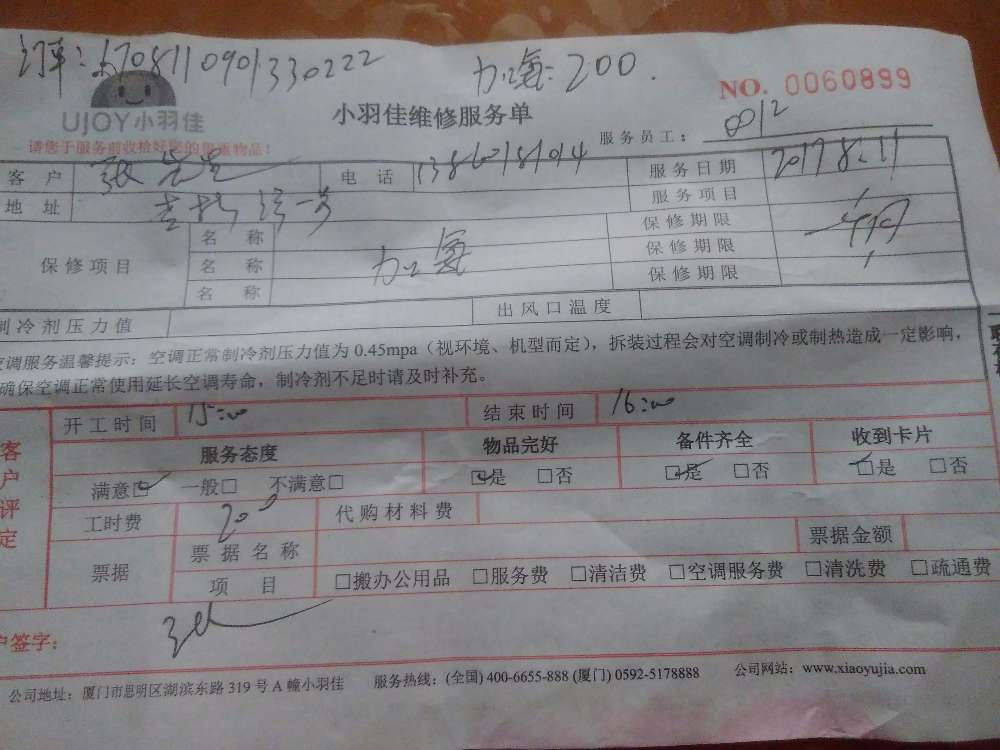 订单:
加氨: 200.
NO. 0060899
UJOY小羽佳
小羽佳维修服务单
服务员工: 0012
请您于服务前收拾好您的贵重物品!
客 户 张先生 电 话 服务日期 2017.8.11
地 址 服务项目
保修项目 名 称 加氨 保修期限
名 称 保修期限
名 称 保修期限
制冷剂压力值 出风口温度
空调服务温馨提示: 空调正常制冷剂压力值为 0.45mpa (视环境、机型而定), 拆装过程会对空调制冷或制热造成一定影响,
确保空调正常使用延长空调寿命, 制冷剂不足时请及时补充。
开工时间 15:00 结束时间 16:00
客户评定
服务态度 物品完好 备件齐全 收到卡片
满意☑ 一般□ 不满意□ ☑是 □否 ☑是 □否 ☑是 □否
工时费 200 代购材料费
票据 票据名称 票据金额
项 目 □搬办公用品 □服务费 □清洁费 □空调服务费 □清洗费 □疏通费
户签字:
公司地址: 厦门市思明区湖滨东路 319 号 A 幢小羽佳 服务热线: (全国) 400-6655-888 (厦门) 0592-5178888 公司网站: www.xiaoyujia.com